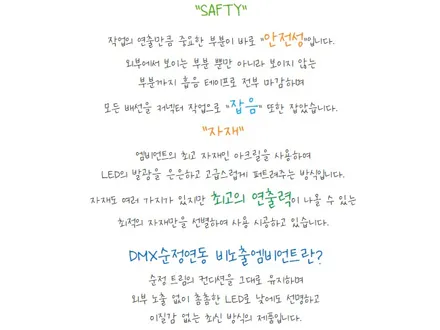 "SAFTY"
작업의 연출만큼 중요한 부분이 바로 "안전성"입니다.
외부에서 보이는 부분 뿐만 아니라 보이지 않는
부분까지 흡음 테이프로 전부 마감하며
모든 배선을 커넥터 작업으로 "잡음" 또한 잡았습니다.
"자재"
엠비언트의 최고 자재인 아크릴을 사용하여
LED의 발광을 은은하고 고급스럽게 퍼트려주는 방식입니다.
자재도 여러 가지가 있지만 최고의 연출력이 나올 수 있는
최적의 자재만을 선별하여 사용 시공하고 있습니다.
DMX순정연동 비노출엠비언트란?
순정 트림의 컨디션을 그대로 유지하며
외부 노출 없이 촘촘한 LED로 낮에도 선명하고
이질감 없는 최신 방식의 제품입니다.